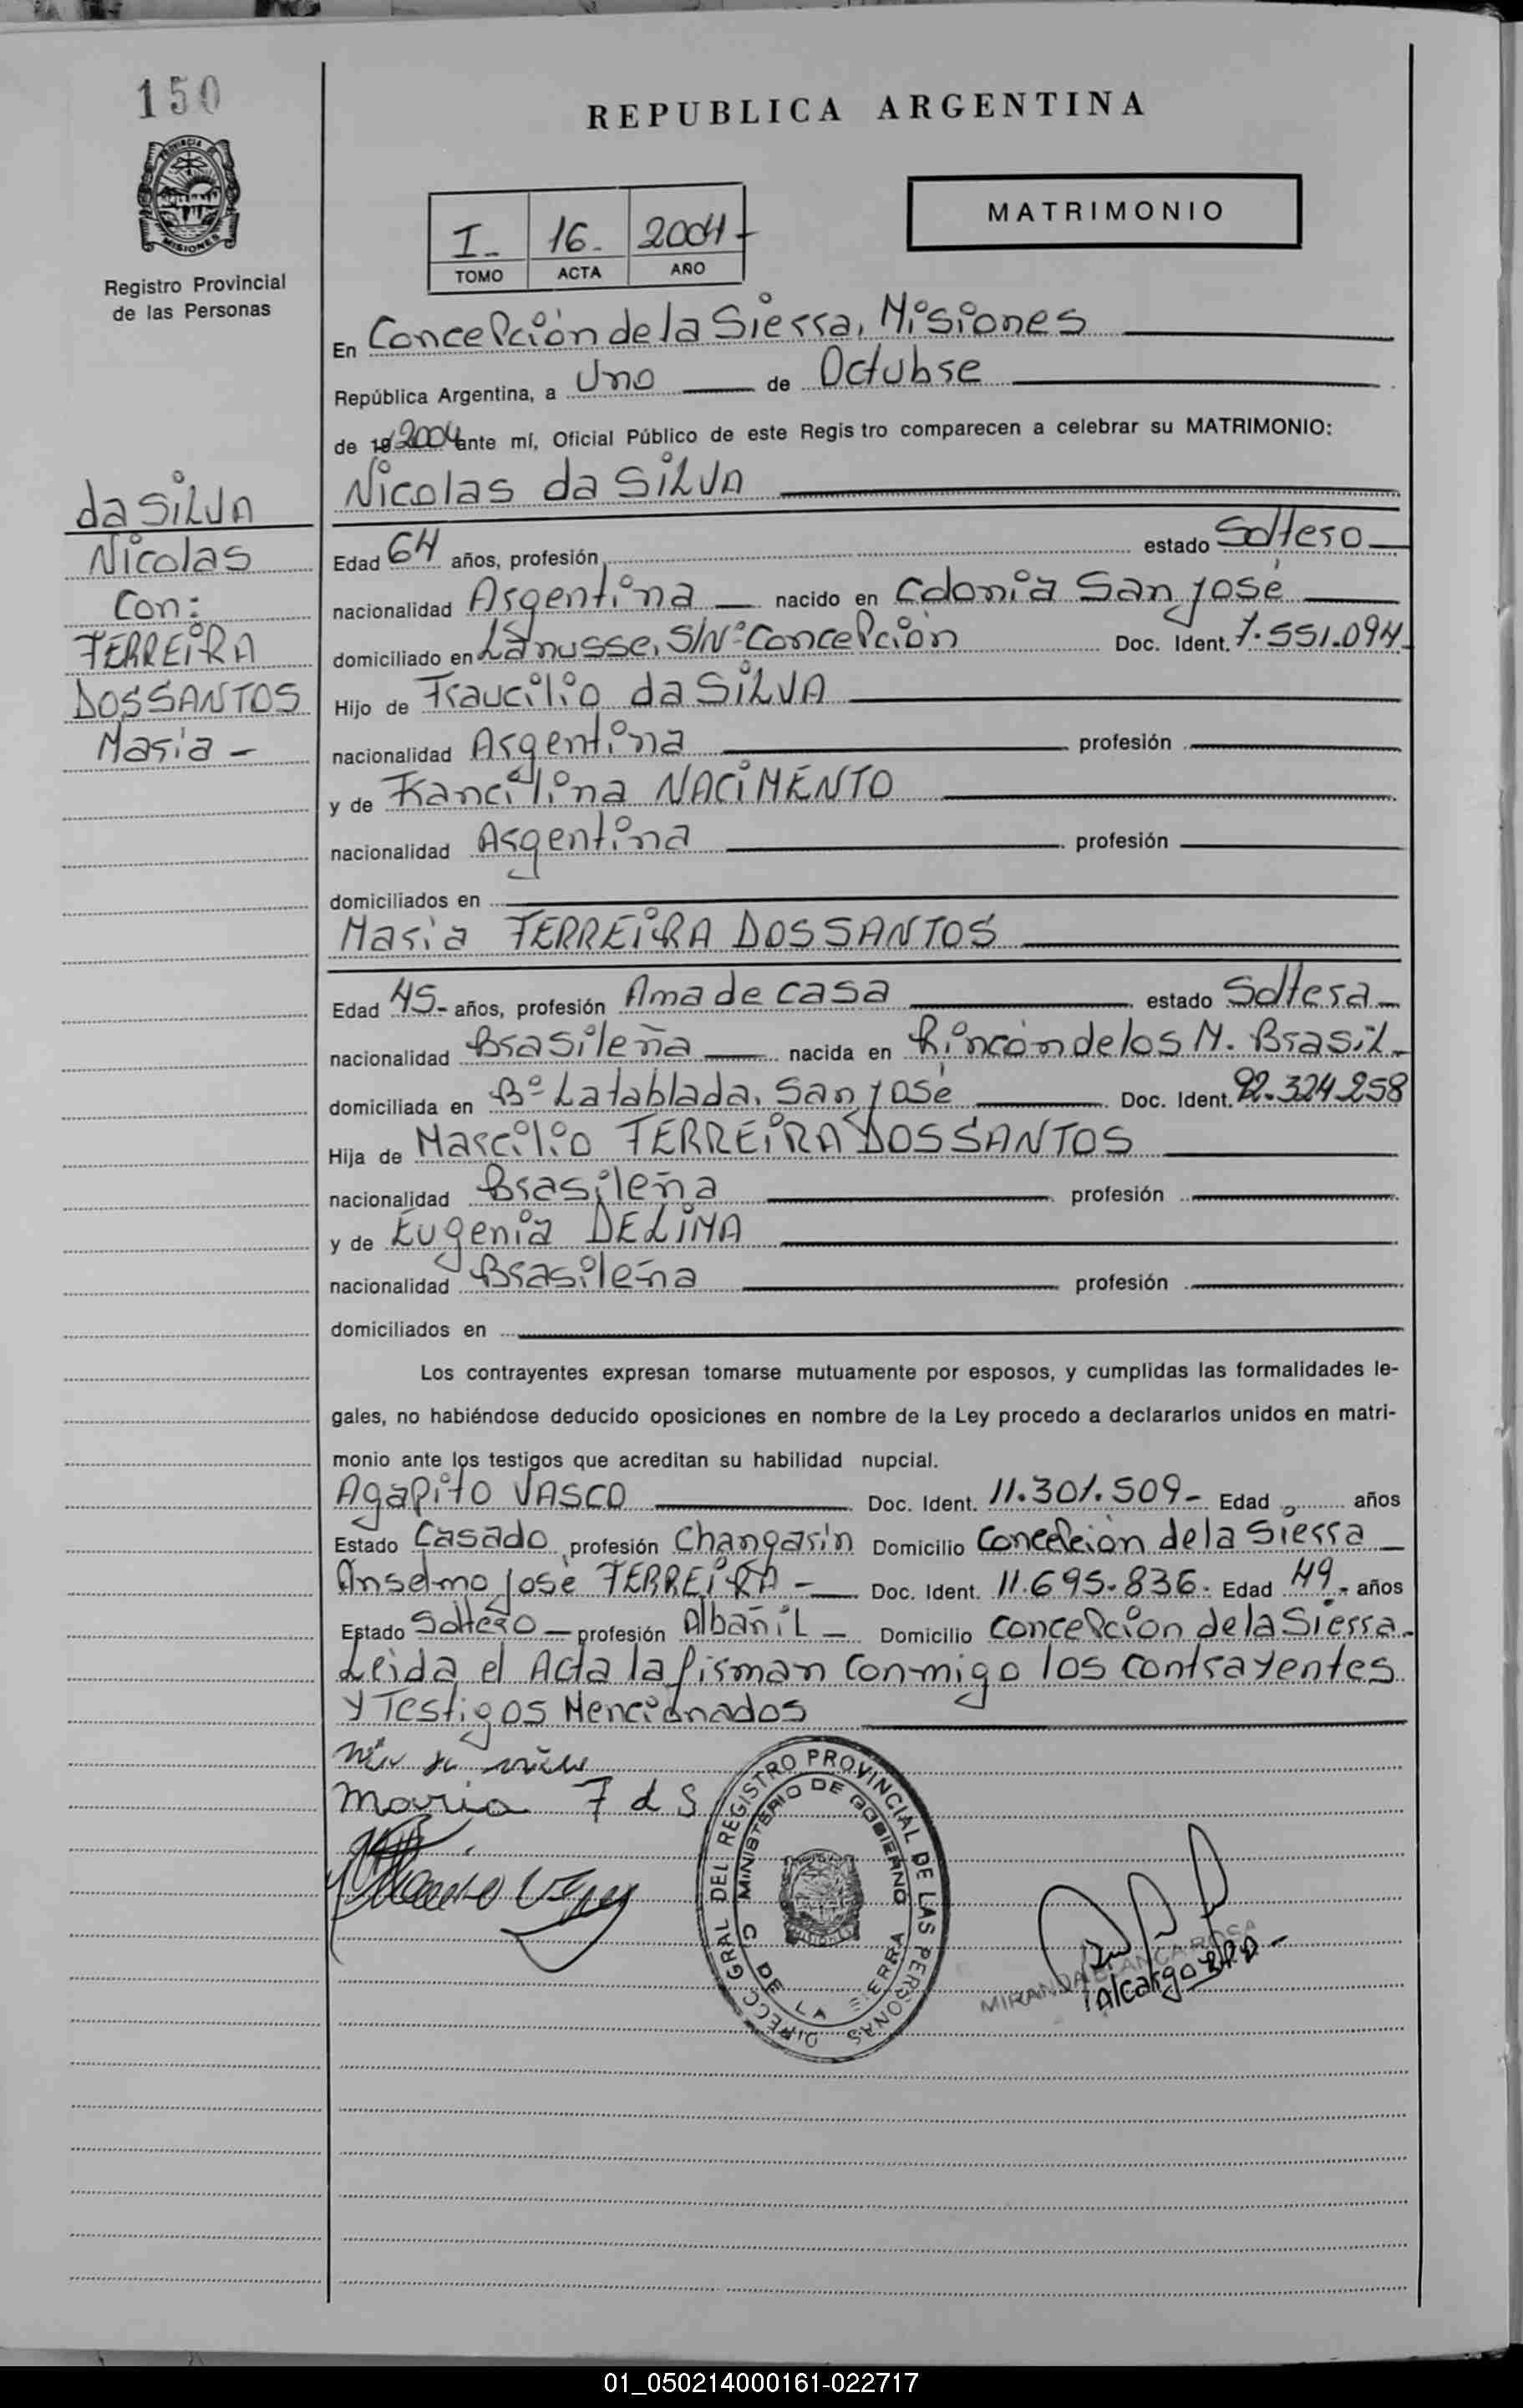 150
REPUBLICA ARGENTINA
PROVINCIA DE
MISIONES
MATRIMONIO
I- 16- 2004-
TOMO ACTA AÑO
Registro Provincial
de las Personas
En Concepción de la Sierra, Misiones
República Argentina, a Uno de Octubre
de 19 2004 ante mí, Oficial Público de este Regis tro comparecen a celebrar su MATRIMONIO:
Nicolas da SiLVA
da SiLVA
Nicolas
Con:
FERREiRA
DOSSANTOS
Maria -
Edad 64 años, profesión estado Soltero
nacionalidad Argentina nacido en Colonia San José
domiciliado en Lanusse, S/Nº Concepción Doc. Ident. 7.551.094
Hijo de Fraucilio da SiLVA
nacionalidad Argentina profesión
y de Francilina NACiMENTO
nacionalidad Argentina profesión
domiciliados en
Maria FERREiRA DOSSANTOS
Edad 45- años, profesión Ama de casa estado Soltera
nacionalidad Brasileña nacida en Rincón de los M. Brasil
domiciliada en Bº La tablada, San José Doc. Ident. 92.324.258
Hija de Marcilio FERREiRA DOSSANTOS
nacionalidad Brasileña profesión
y de Eugenia DELiMA
nacionalidad Brasileña profesión
domiciliados en
Los contrayentes expresan tomarse mutuamente por esposos, y cumplidas las formalidades le-
gales, no habiéndose deducido oposiciones en nombre de la Ley procedo a declararlos unidos en matri-
monio ante los testigos que acreditan su habilidad nupcial.
Agapito VASCO Doc. Ident. 11.301.509- Edad años
Estado Casado profesión Changarin Domicilio Concepcion de la Sierra
Anselmo José FERREiRA - Doc. Ident. 11.695.836. Edad 49.- años
Estado Soltero - profesión Albañil - Domicilio Concepcion de la Sierra
Leida el Acta la firman Conmigo los contrayentes
y Testigos Mencionados
maria F d S
DIRECC GRAL DEL REGISTRO PROVINCIAL DE LAS PERSONAS
MINISTERIO DE GOBIERNO
C DE LA SIERRA
MIRANDA BLANCA ROSA
Alcargo
01_050214000161-022717